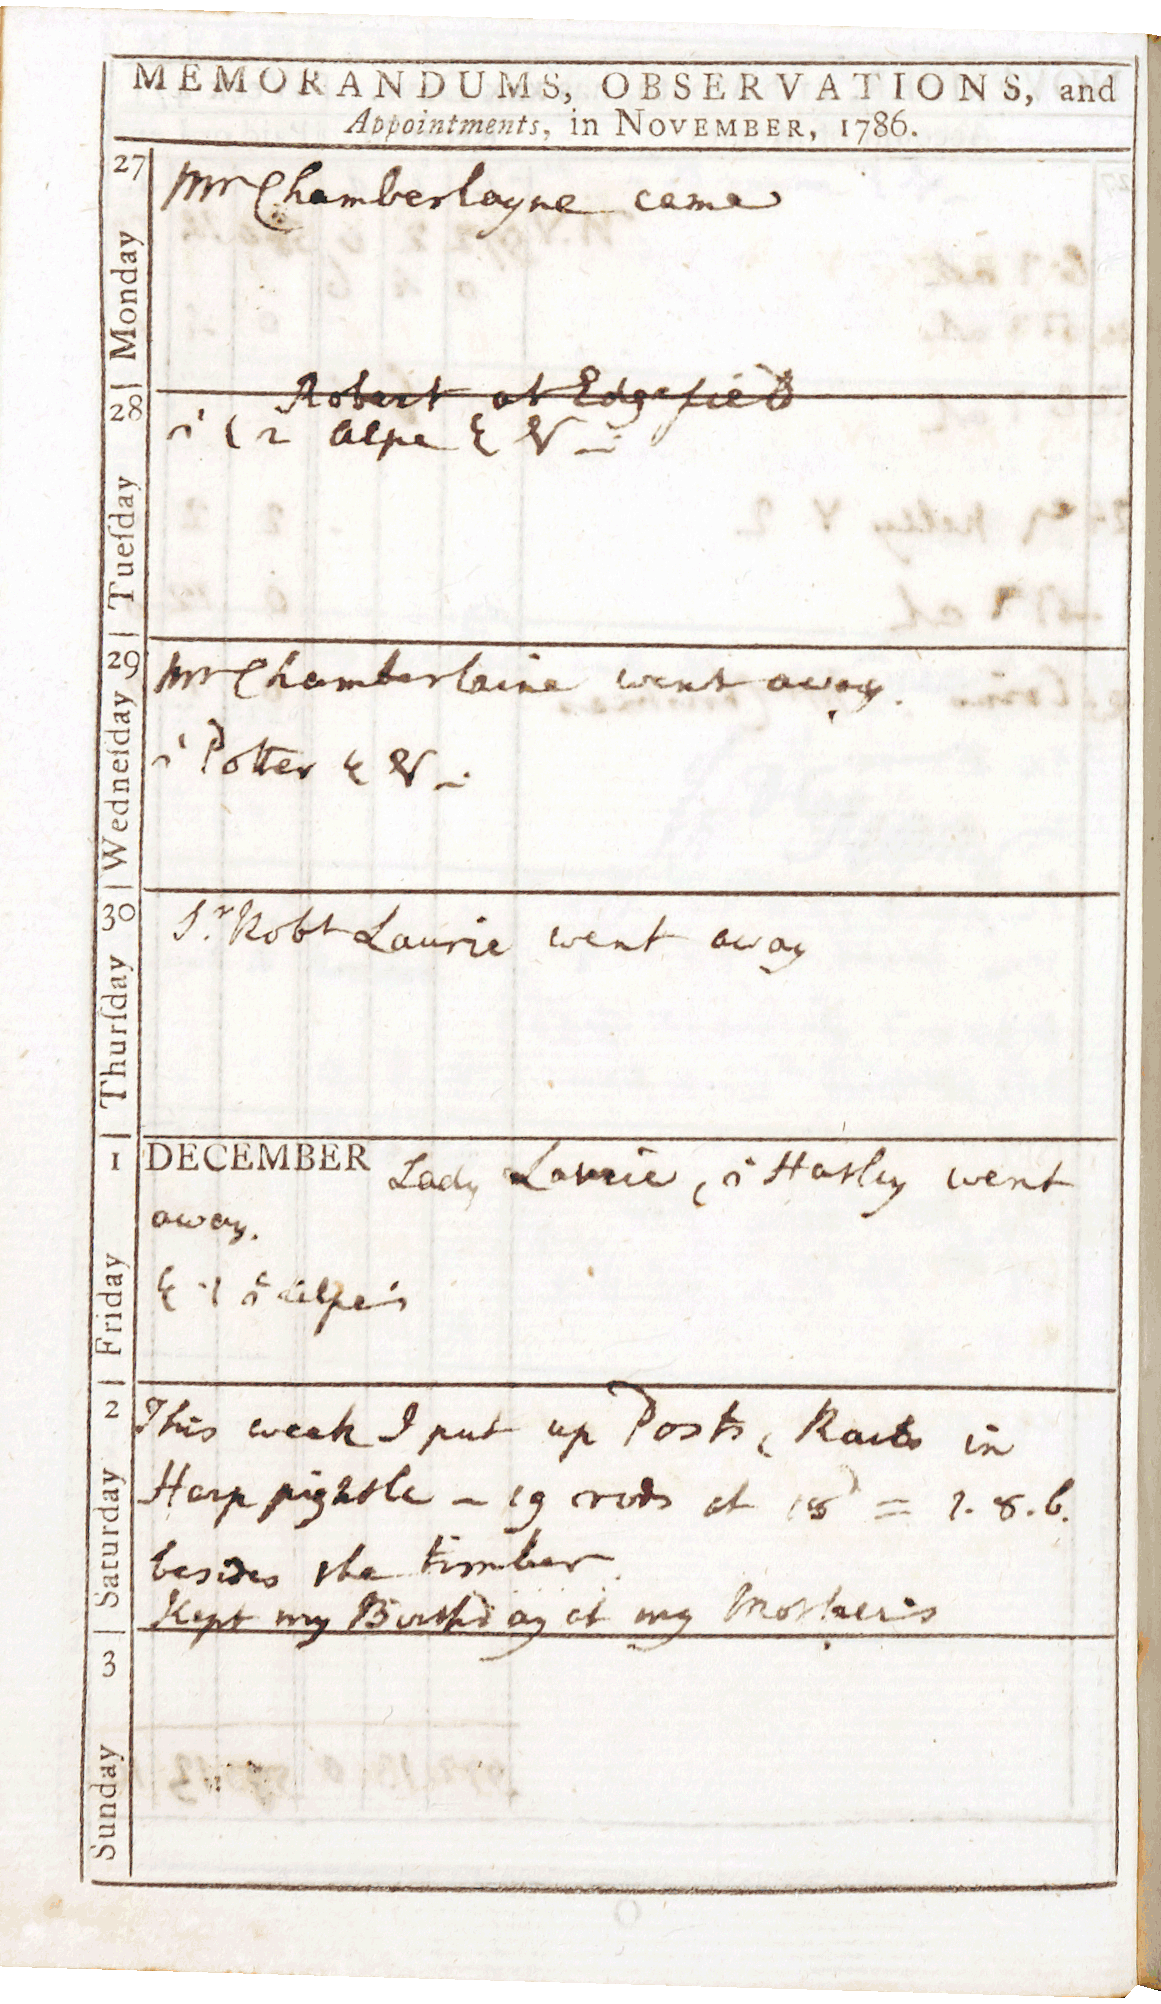 MEMORANDUMS, OBSERVATIONS, and
Appointments, in NOVEMBER, 1786.
27 Monday
Mr Chamberlayne came
Robert at Edgefield
28 Tueſday
Alpe &
29 Wedneſday
Mr Chamberlaine went away.
Potter
30 Thurſday
Sr. Robt Laurie went away
1 Friday
DECEMBER Lady Laurie, Hatley went
away.
Alpe's
2 Saturday
This week I put up Posts, Rails in
Harp pightle – 19 rods at 18d = 1.8.6.
besides the timber.
Kept my Birthday at my Mother's
3 Sunday